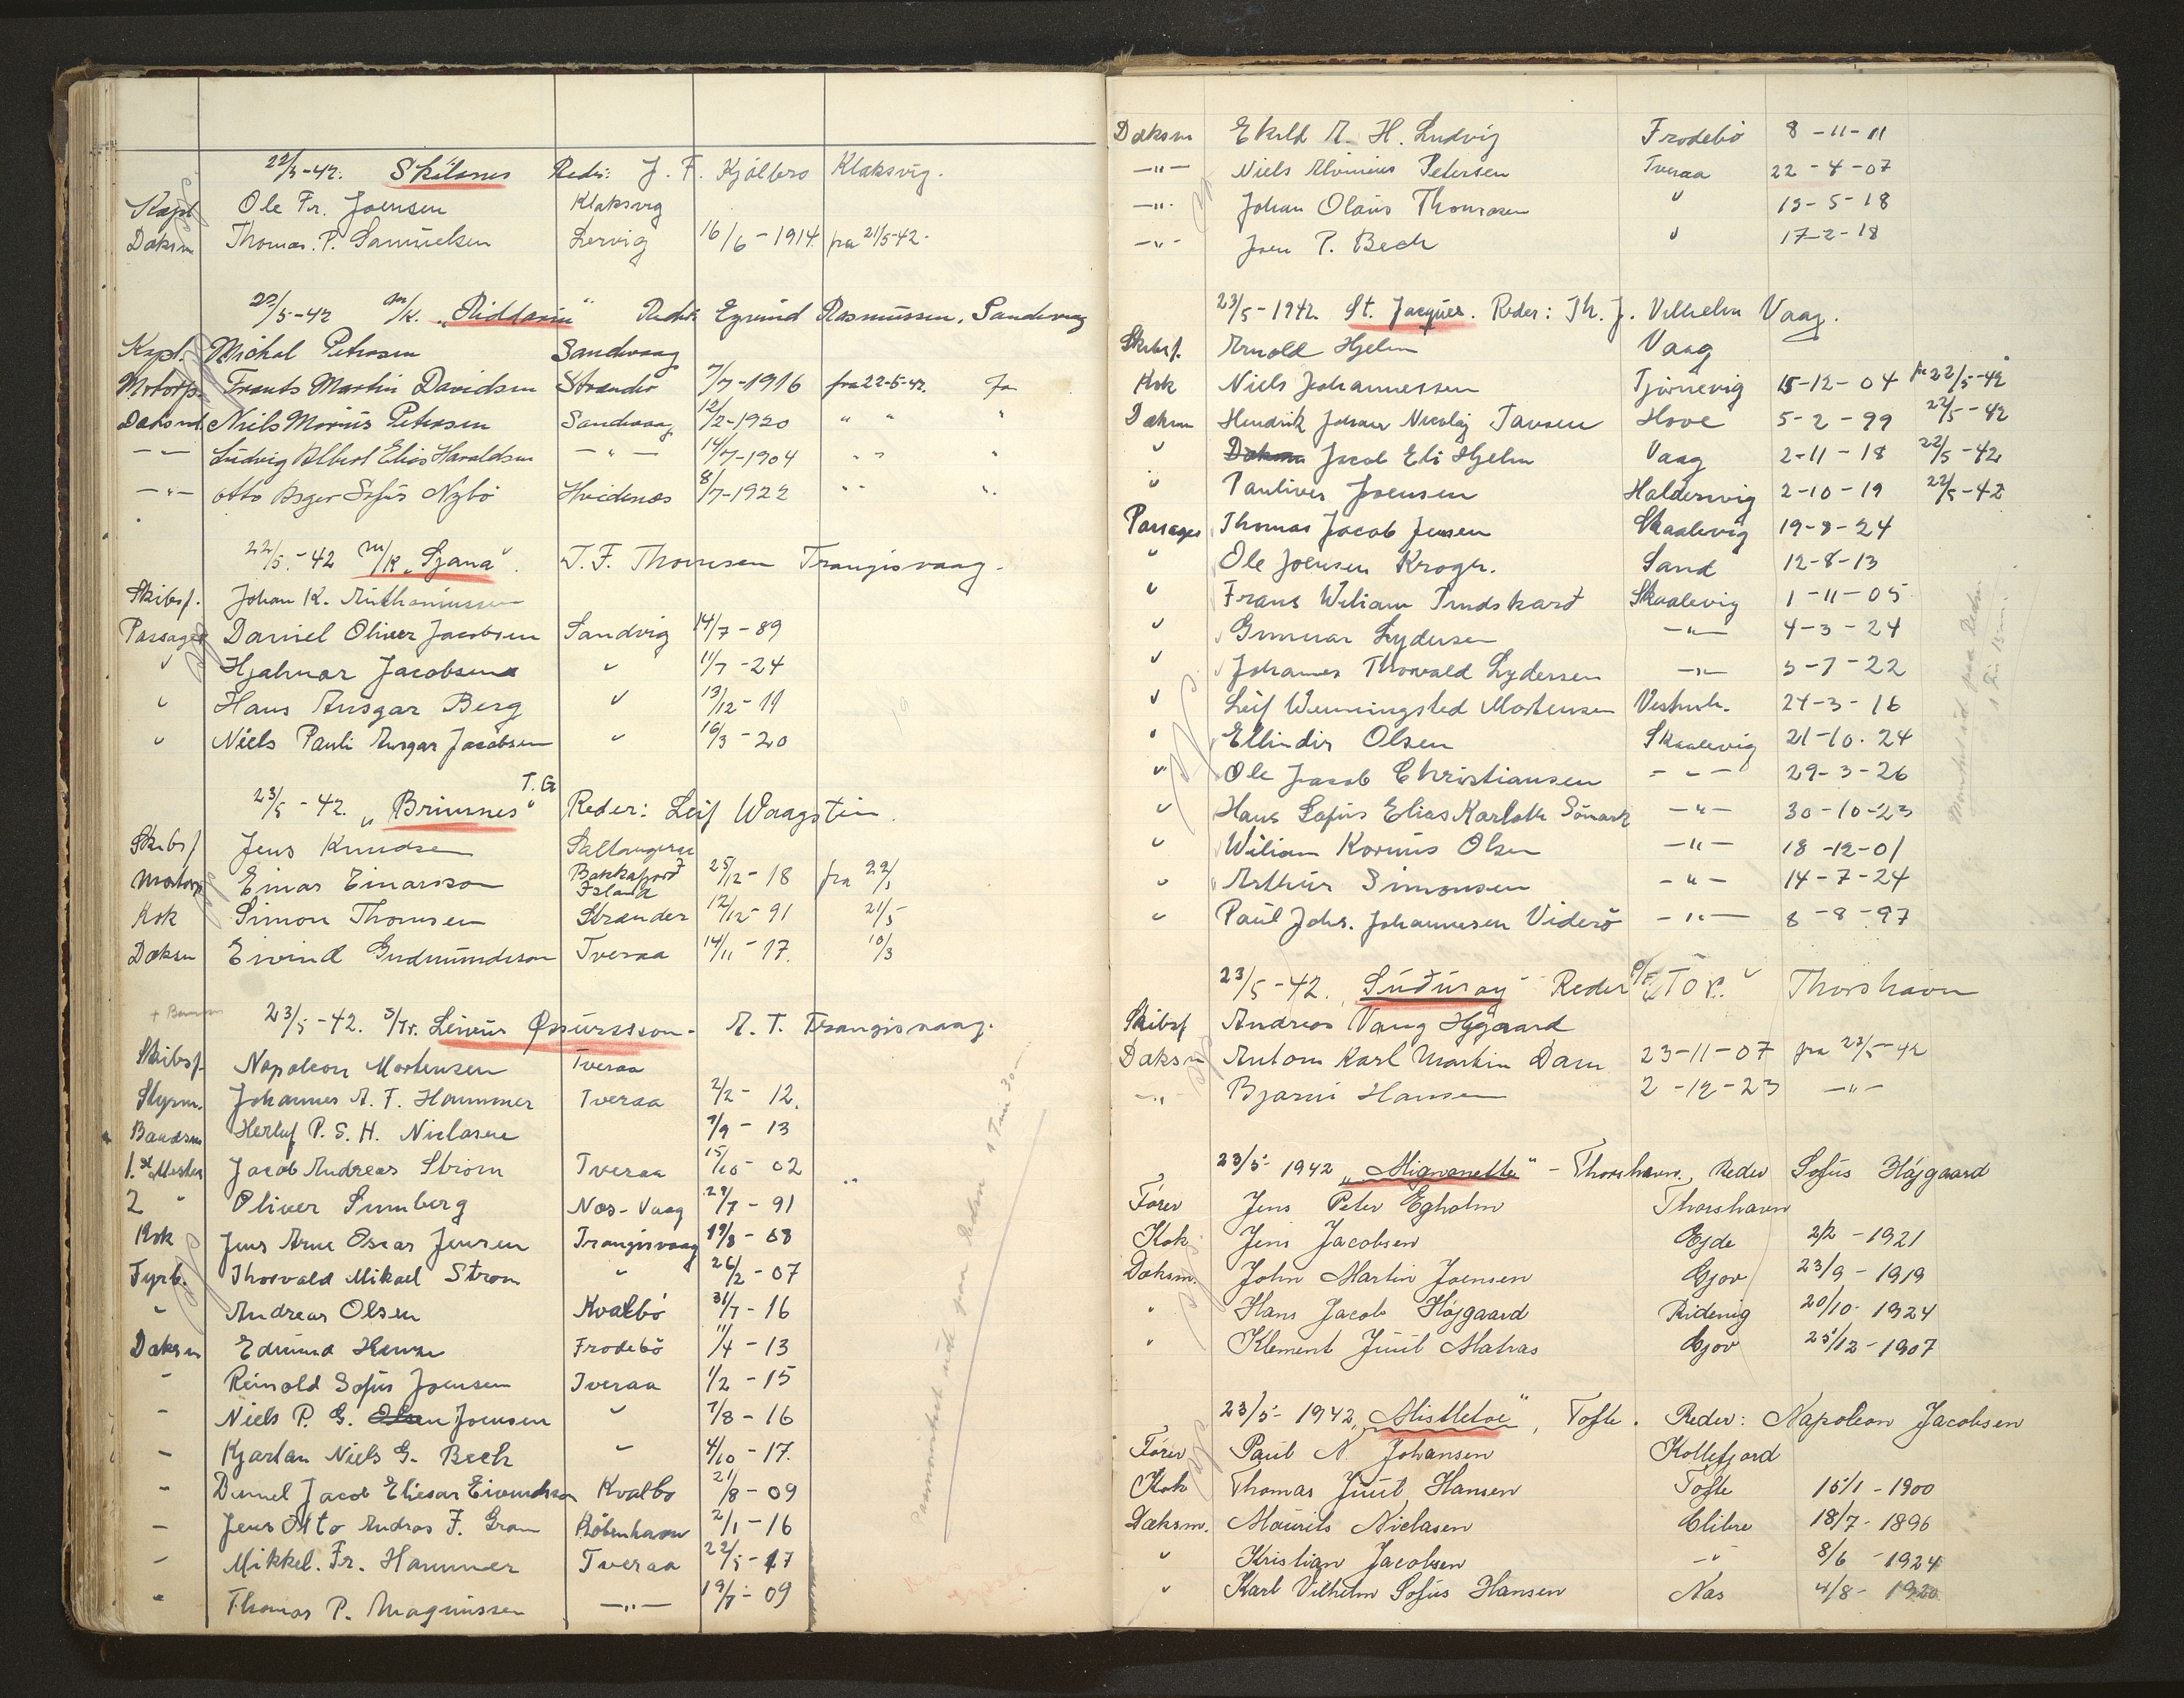 22/5-42. Skålanes Reder: J. F. Kjölbro Klaksvig.
Kapt Ole Fr. Joensen Klaksvig
Dæksm Thomas. P. Samuelsen Lervig 16/6-1914 fra 21/5-42.
22/5-42 m/k. „Riddarin" Reder: Egmund Rasmussen, Sandevaag
Kapt. Michal Petersen Sandevaag
Motorp. Frants Martin Davidsen Strandø 7/7-1916 fra 22-5-42.
Dæksm. Niels Morius Petersen Sandevaag 12/2-1920 " " "
— — Ludvig Albert Elias Haraldsen —"— 14/7-1904 " " "
—"— Otto Birger Sofus Nybö Hvidenæs 8/7-1922 " " "
22/5.-42 m/k „Sjana". T. F. Thomsen Trangisvaag.
Skibsf. Johan K.
Passager Daniel Oliver Jacobsen Sandvig 14/7-89
" Hjalmar Jacobsen " 11/7-24
" Hans Ansgar Berg " 13/12-11
" Niels Pauli Ansgar Jacobsen " 16/3-20
23/5-42. „Brimnes" T.G Reder: Leif Waagstein
Skibsf Jens Knudsen Saltangerá
Motorp Einar Einarsson Bakkafjord Island 25/12-18 fra 22/5
Kok Simon Thomsen Strænder 12/12-91 21/5
Dæksm Eivind Gudmundsson Tveraa 14/11-17. 10/3
23/5-42. S/Tr. Leivur Øssursson. A. T. Trangisvaag.
Skibsf. Napoleon Mortensen Tveraa
Styrm. Johannes A. F. Hammer Tveraa 2/2-12.
Baadsm Herluf P. E. H. Niclasen 7/9-13
1.st Mester Jacob Andreas Strøm Tveraa 15/10-02
2 " Oliver Sumberg Næs-Vaag 29/7-91
Kok Jens Arne Oscar Jensen Trangisvaag 19/8-08
Fyrb. Thorvald Mikael Strøm " 26/2-07
" Andreas Olsen Kvalbö 31/7-16
Dæksm Edmund Frodebö 11/4-13
- Reinold Sofus Joensen Tveraa 1/2-15
- Niels P. G. Olsen Joensen " 7/8-16
- Kjartan Niels G. Bech " 4/10-17.
- Daniel Jacob Eliesar Eivindsson Kvalbo 21/8-09
- Jens Otto Andras F. Gram København 2/1-16
- Mikkel. Fr. Hammer Tveraa 22/5-17
" Thomas P. Magnussen —"— 19/7-09
Dæksm A. H. Ludvig Frodebö 8-11-11
—"— Niels Petersen Tveraa 22-4-07
—"— Johan Olaus Thomasen " 13-5-18
—"— Joen P. Bech " 17-2-18
23/5-1942 St. Jacques. Reder: Th. J. Vilhelm Vaag.
Skibsf. Arnold Hjelm Vaag
Kok Niels Johannessen Tjörnevig 15-12-04 fra 22/5-42
Dæksm Hendrik Johan Nicolaj Tausen Hove 5-2-99 22/5-42
" Dæksm Jacob Eli Hjelm Vaag 2-11-18 22/5-42
" Pauliver Joensen Haldersvig 2-10-19 22/5-42
Passager Thomas Jacob Jensen Skaalevig 19-8-24
" Ole Joensen Krogh. Sand 12-8-13
" Frans Wiliam Trudskard Skaalevig 1-11-05
" Gunnar Lydersen —"— 4-3-24
" Johannes Thorvald Lydersen —"— 5-7-22
" Leif Wenningsted Mortensen Vestmh. 24-3-16
" Ellindir Olsen Skaalevig 21-10.24
" Ole Jacob Christiansen —"— 29-3-26
" Hans Sofus Elias Karlott —"— 30-10-23
" Wiliam Kornus Olsen —"— 18-12-01
" Arthur Simonsen —"— 14-7-24
" Paul Johs. Johannesen Viderö —"— 8-8-97
23/5-42. „Suðuroy" Reder P/F „TOR" Thorshavn
Skibsf Andreas Vang Højgaard
Dæksm Antom Karl Martin Dam 23-11-07 fra 23/5-42
—"— Bjarni Hansen 2-12-23 —"—
23/5-1942 „Mignonette" - Thorshavn, Reder Sofus Højgaard
Fører Jens Peter Egholm Thorshavn
Kok Jens Jacobsen Ejde 2/2-1921
Dæksm. John Martin Joensen Gjov 23/9-1919
" Hans Jacob Højgaard Ridevig 20/10-1924
" Klement Juul Matras Gjov 25/12-1907
23/5-1942 „Mistletoe", Tofte. Reder: Napoleon Jacobsen
Fører Paul N. Johansen Kollefjord
Kok Thomas Juul Hansen Tofte 15/1-1900
Dæksm. Mourits Niclasen Glibre 18/7-1896
" Kristian Jacobsen —"— 8/6-1924
" Karl Vilhelm Sofus Hansen Næs 4/8-1920